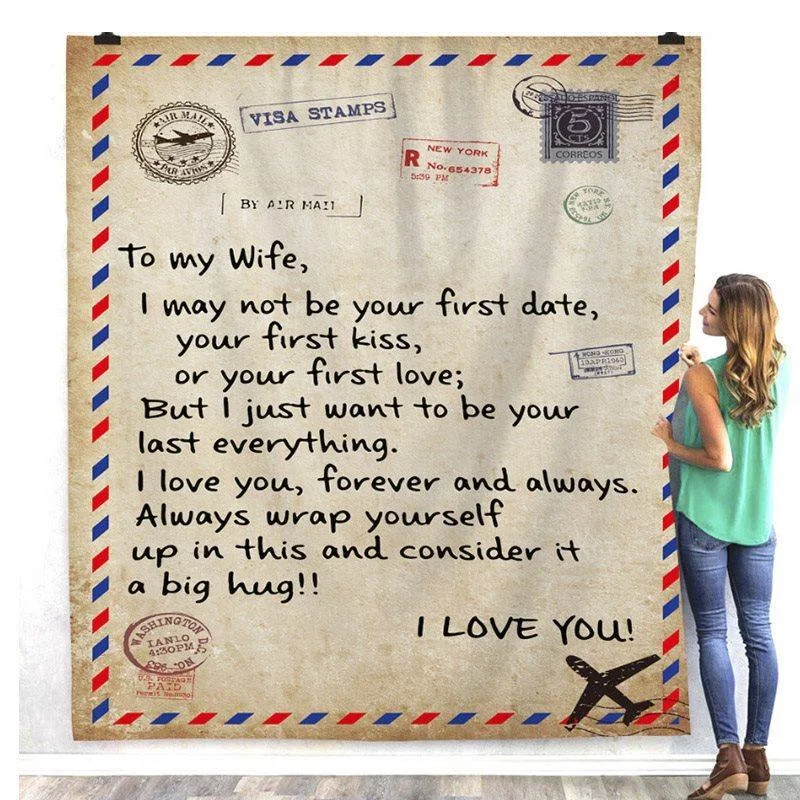 AIR MAIL
PAR AVION
VISA STAMPS
R NEW YORK
No. 654378
5:39 PM
5
CTS
CORREOS
BY AIR MAIL
NEW YORK
To my Wife,
I may not be your first date,
your first kiss,
or your first love;
HONG-KONG
10APR1960
But I just want to be your
last everything.
I love you, forever and always.
Always wrap yourself
up in this and consider it
a big hug!!
I LOVE YOU!
WASHINGTON D.C.
4:30PM
U.S. POSTAGE
PAID